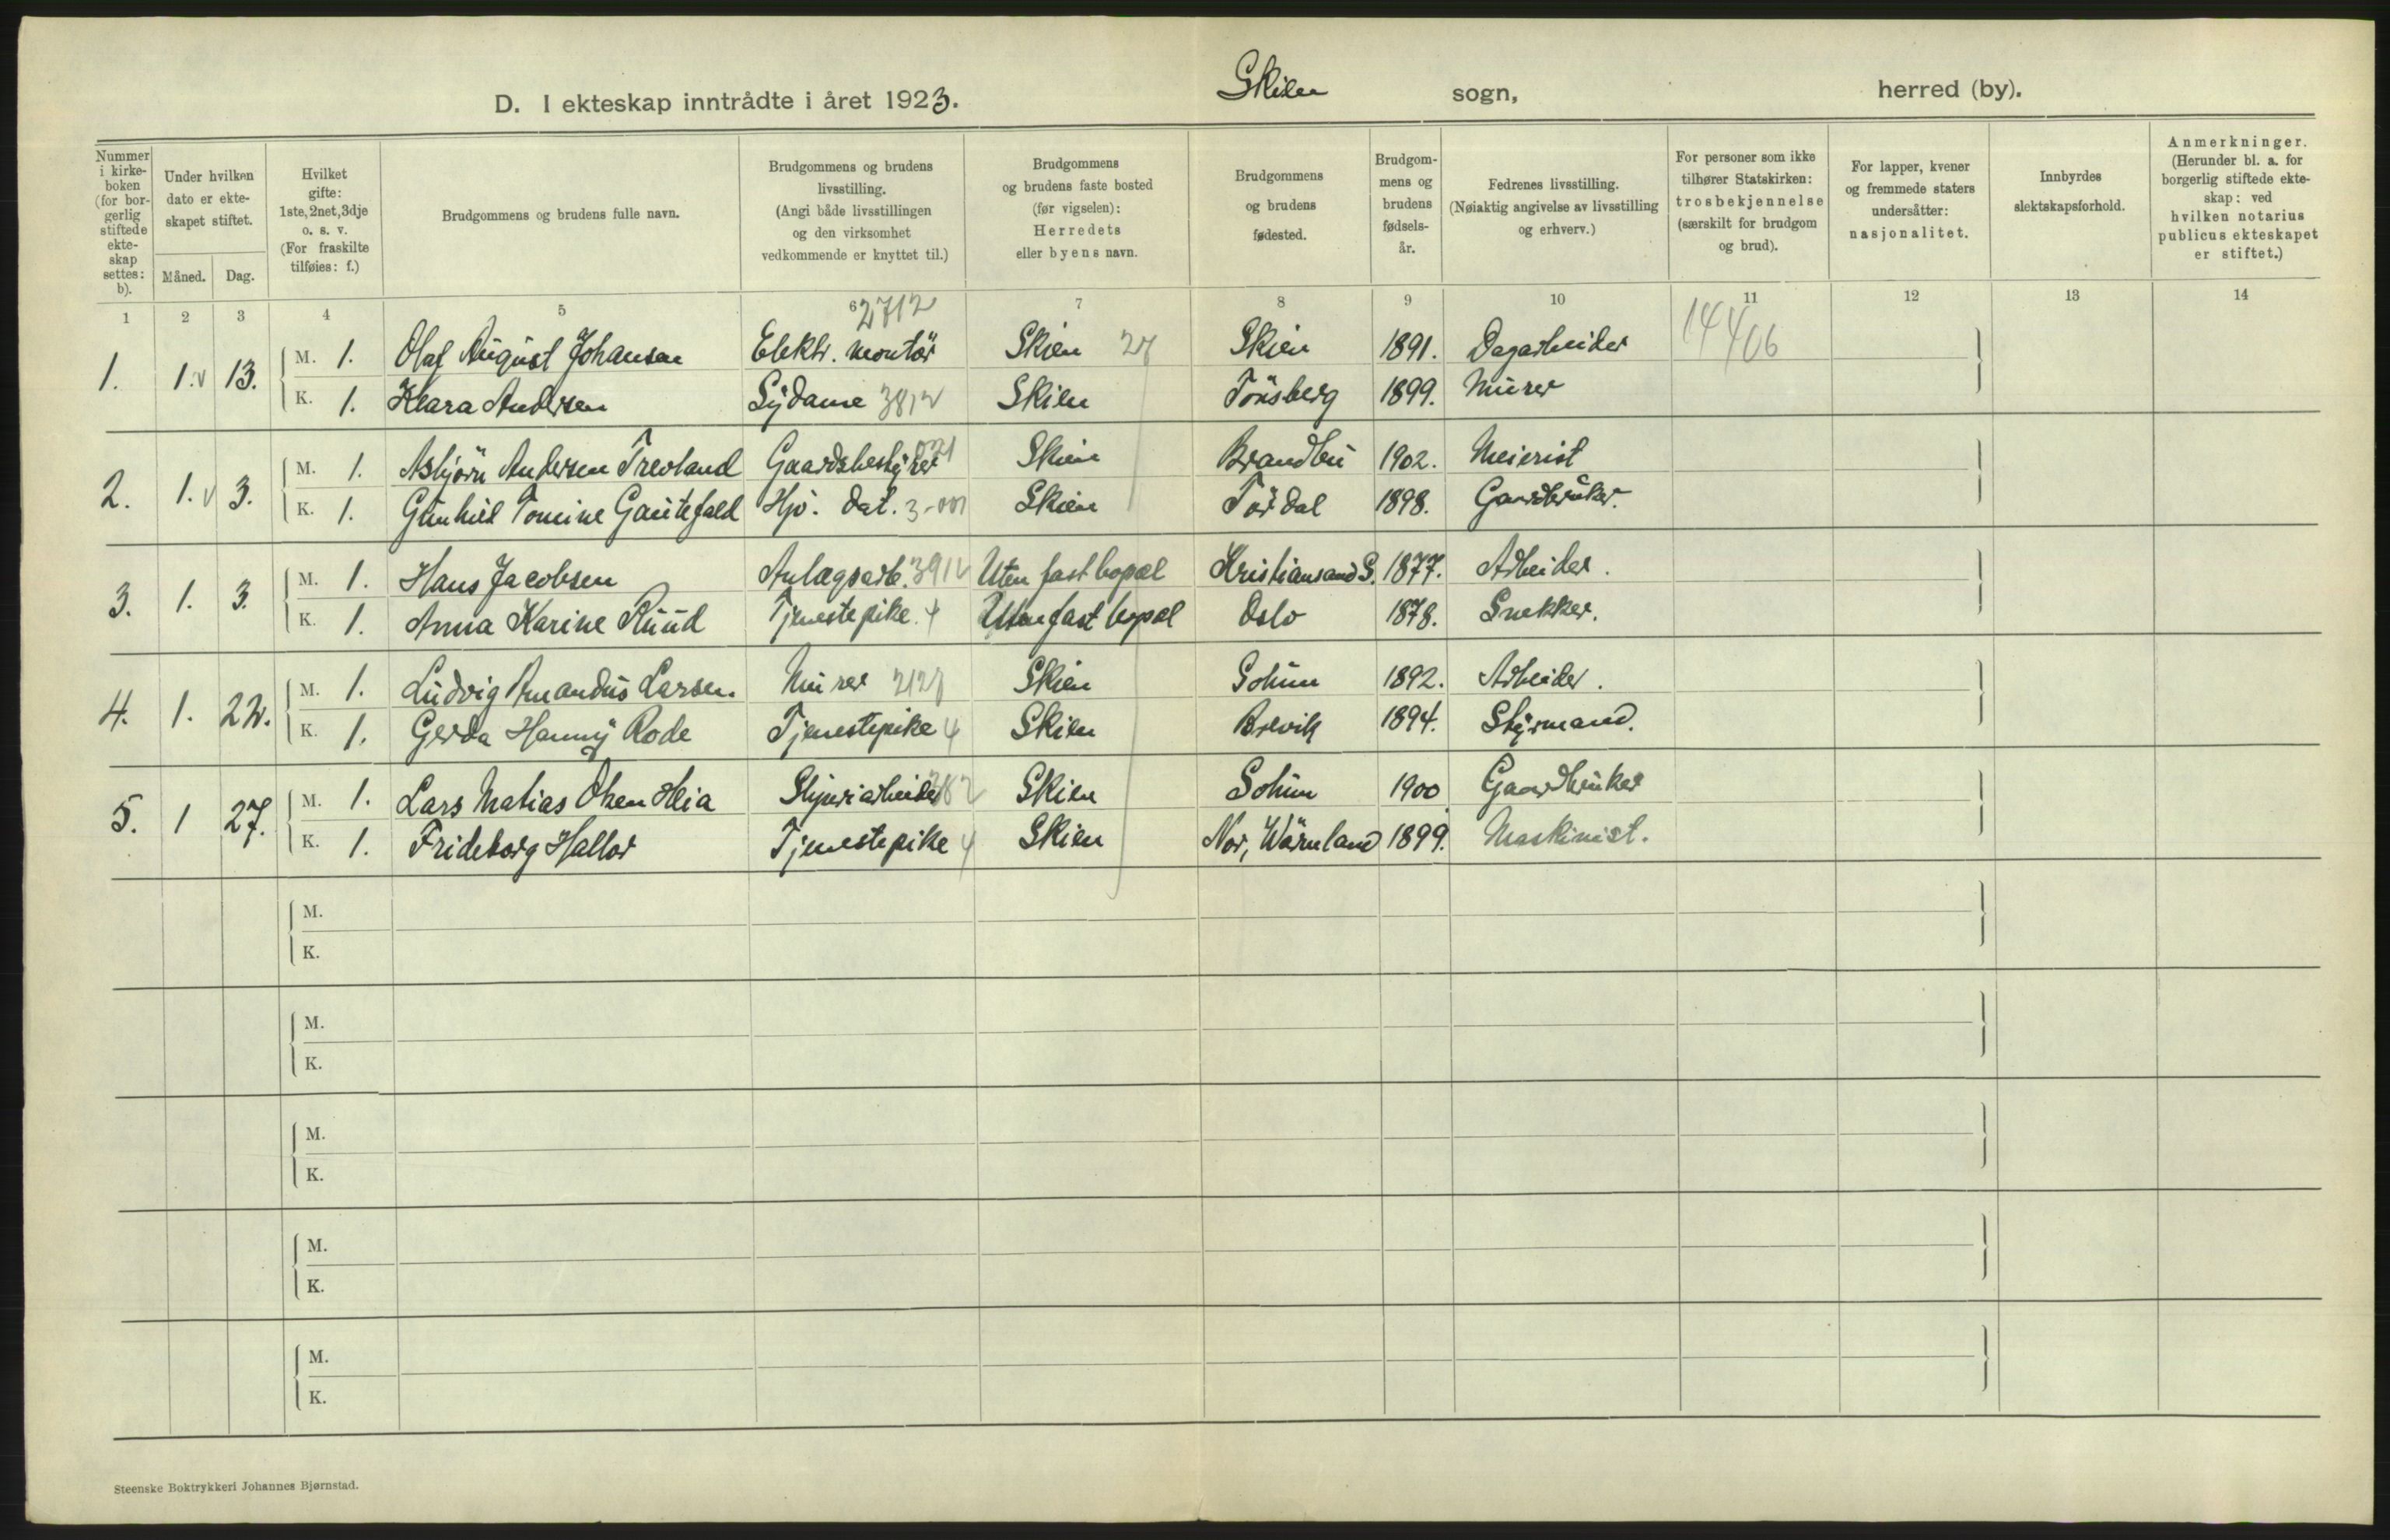 D. I ekteskap inntrådte i året 1923. Skien sogn, herred (by).
Nummer i kirkeboken (for borgerlig stiftede ekteskap settes: b).
Under hvilken dato er ekteskapet stiftet.
Måned. Dag.
Hvilket gifte: 1ste, 2net, 3dje o. s. v. (For fraskilte tilføies: f.)
Brudgommens og brudens fulle navn.
Brudgommens og brudens livsstilling. (Angi både livsstillingen og den virksomhet vedkommende er knyttet til.)
Brudgommens og brudens faste bosted (før vigselen): Herredets eller byens navn.
Brudgommens og brudens fødested.
Brudgommens og brudens fødselsår.
Fedrenes livsstilling. (Nøiaktig angivelse av livsstilling og erhverv.)
For personer som ikke tilhører Statskirken: trosbekjennelse (særskilt for brudgom og brud).
For lapper, kvener og fremmede staters undersåtter: nasjonalitet.
Innbyrdes slektskapsforhold.
Anmerkninger. (Herunder bl. a. for borgerlig stiftede ekteskap: ved hvilken notarius publicus ekteskapet er stiftet.)
1 2 3 4 5 6 7 8 9 10 11 12 13 14
2712
1. 1. v 13. M. 1. Olaf August Johansen Elektr. montör Skien 27 Skien 1891. Dagarbeider 14406
K. 1. Klara Andersen Sydame 3812 Skien Tönsberg 1899. Murer
2. 1. v 3. M. 1. Asbjörn Andersen Trevland Gaardsbestyrer 021 Skien Brandbu 1902. Meierist
K. 1. Gunhild Tomine Gautefald Hjv. dat. 3-001 Skien Tördal 1898. Gaardbruker.
3. 1. 3. M. 1. Hans Jacobsen Anlægsarb. 3912 Uten fast bopæl Kristiansand S. 1877. Arbeider.
K. 1. Anna Karine Ruud Tjenestepike. 4 Uten fast bopæl Oslo 1878. Snekker.
4. 1. 22. M. 1. Ludvig Amandus Larsen. Murer 2127 Skien Solum 1892. Arbeider.
K. 1. Gerda Hanny Rode Tjenestepike 4 Skien Brevik 1894. Styrmand.
5. 1 27. M. 1. Lars Matias Olsen Heia Sliperiarbeider 382 Skien Solum 1900 Gaardbruker
K. 1. Frideborg Hallor Tjenestepike 4 Skien Nor, Wärmland 1899. Maskinist.
M.
K.
M.
K.
M.
K.
M.
K.
M.
K.
Steenske Boktrykkeri Johannes Bjørnstad.